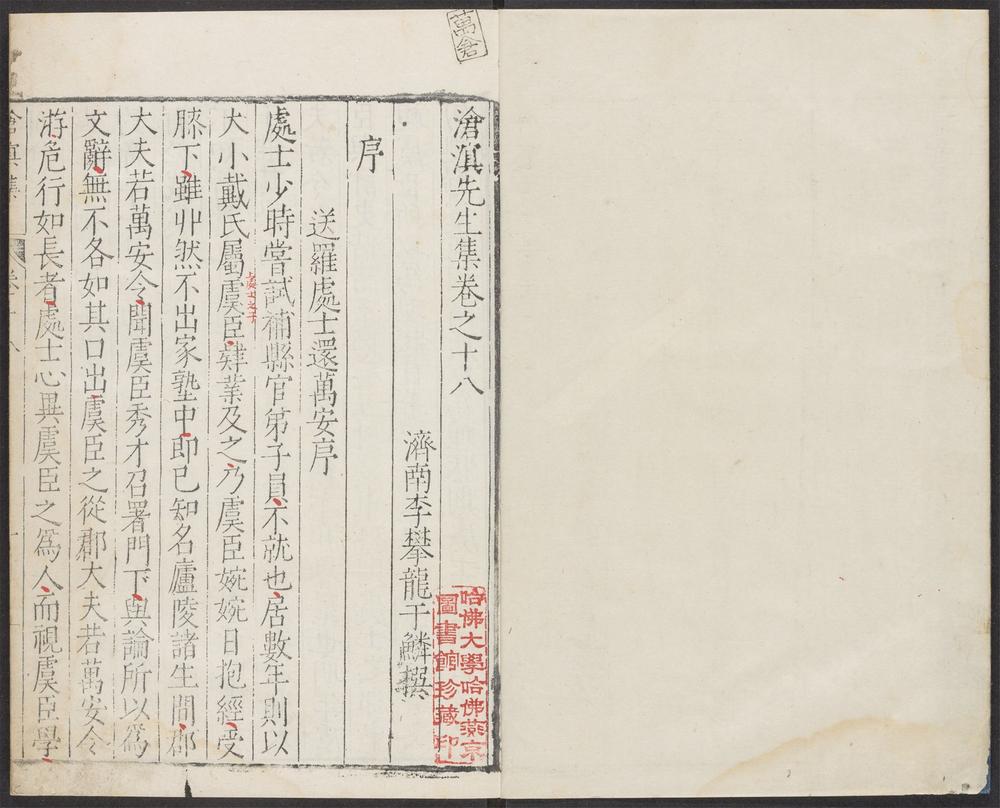 萬倉
滄溟先生集卷之十八
濟南李攀龍于鱗撰
哈佛大學哈佛燕京
圖書館珍藏印
序
送羅處士還萬安序
處士少時嘗試補縣官弟子員不就也居數年則以
大小戴氏屬虞臣肄業及之乃虞臣婉婉日抱經受
處士之子
膝下雖丱然不出家塾中即已知名廬陵諸生間郡
大夫若萬安令聞虞臣秀才召署門下與論所以為
文辭無不各如其口出虞臣之從郡大夫若萬安令
游危行如長者處士心異虞臣之為人而視虞臣學
滄溟集
卷十八
一